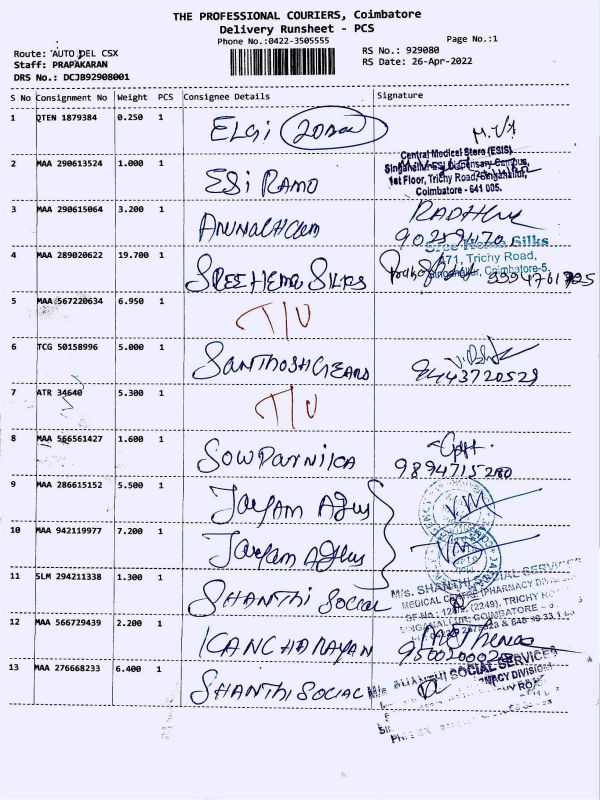 THE PROFESSIONAL COURIERS, Coimbatore
Delivery Runsheet - PCS
Phone No.:0422-3505555
Page No.:1
Route: AUTO DEL CSX
RS No.: 929080
Staff: PRAPAKARAN
RS Date: 26-Apr-2022
DRS No.: DCJB92908001
S No Consignment No Weight PCS Consignee Details Signature
1 QTEN 1879384 0.250 1 ELGI
Central Medical Store (ESIS)
Singanallur ESI Dispensary Campus,
1st Floor, Trichy Road, Singanallur,
Coimbatore - 641 005.
2 MAA 290613524 1.000 1 ESI RAMO
3 MAA 290615064 3.200 1 ARUNACHLAM
Sree Hema Silks
471, Trichy Road,
Singanallur, Coimbatore-5.
4 MAA 289020622 19.700 1 SREE HEMA SILKS
5 MAA 567220634 6.950 1 T/U
6 TCG 50158996 5.000 1 SANTHOSH GEARS 9443720529
7 ATR 34640 5.300 1 T/U
8 MAA 566561427 1.600 1 SOWPARNIKA 9894715280
9 MAA 286615152 5.500 1 Jayam VM
10 MAA 942119977 7.200 1 Jayam VM
11 SLM 294211338 1.300 1 SHANTHI SOCIAL
M/s. SHANTHI SOCIAL SERVICES
MEDICAL CENTRE (PHARMACY DIVISION)
12 MAA 566729439 2.200 1 KANCHARAYAN
13 MAA 276668233 6.400 1 SHANTHI SOCIAL
M/s SHANTHI SOCIAL SERVICES